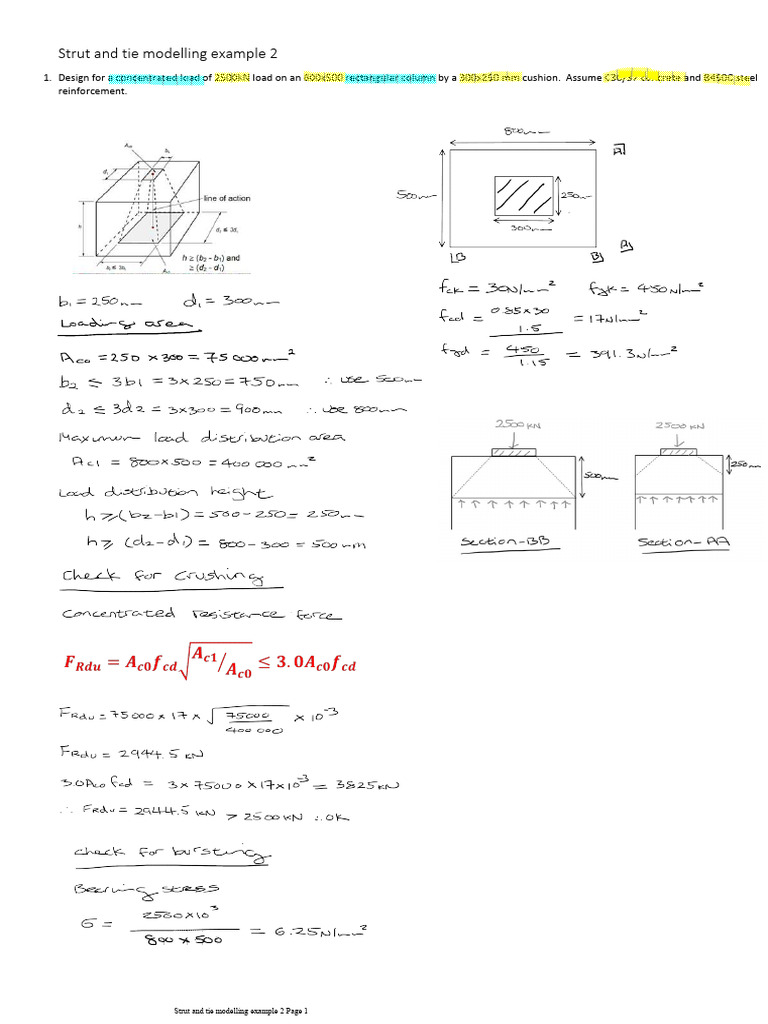 Strut and tie modelling example 2
1. Design for a concentrated load of 2500kN load on an 800x500 rectangular column by a 300x250 mm cushion. Assume C30/37 concrete and B450C steel
reinforcement.
Ac0
b1
d1
line of action
h
d2 ≤ 3d1
h ≥ (b2 - b1) and
≥ (d2 - d1)
b2 ≤ 3b1
Ac1
800mm
A
500mm
250mm
300mm
B
B
A
b1 = 250mm d1 = 300mm
Loading area
Ac0 = 250 x 300 = 75000mm²
b2 ≤ 3b1 = 3x250 = 750mm ∴ use 500mm
d2 ≤ 3d2 = 3x300 = 900mm ∴ use 800mm
Maximum load distribution area
Ac1 = 800x500 = 400 000mm²
Load distribution height
h ≥ (b2-b1) = 500-250 = 250mm
h ≥ (d2-d1) = 800-300 = 500mm
fck = 30N/mm² fyk = 450N/mm²
fcd = 0.85x30
1.5
= 17N/mm²
fyd = 450
1.15
= 391.3N/mm²
2500kN
500mm
Section-BB
2500kN
250mm
Section-AA
Check for crushing
Concentrated resistance force
FRdu = Ac0fcd√Ac1/Ac0 ≤ 3.0Ac0fcd
FRdu = 75000 x 17 x √75000
400 000
x 10⁻³
FRdu = 2944.5 kN
3.0Ac0 fcd = 3 x 75000 x 17x10⁻³ = 3825kN
∴ FRdu = 2944.5 kN > 2500kN ∴ OK
Check for bursting
Bearing stress
σ = 2500x10³
800 x 500
= 6.25N/mm²
Strut and tie modelling example 2 Page 1